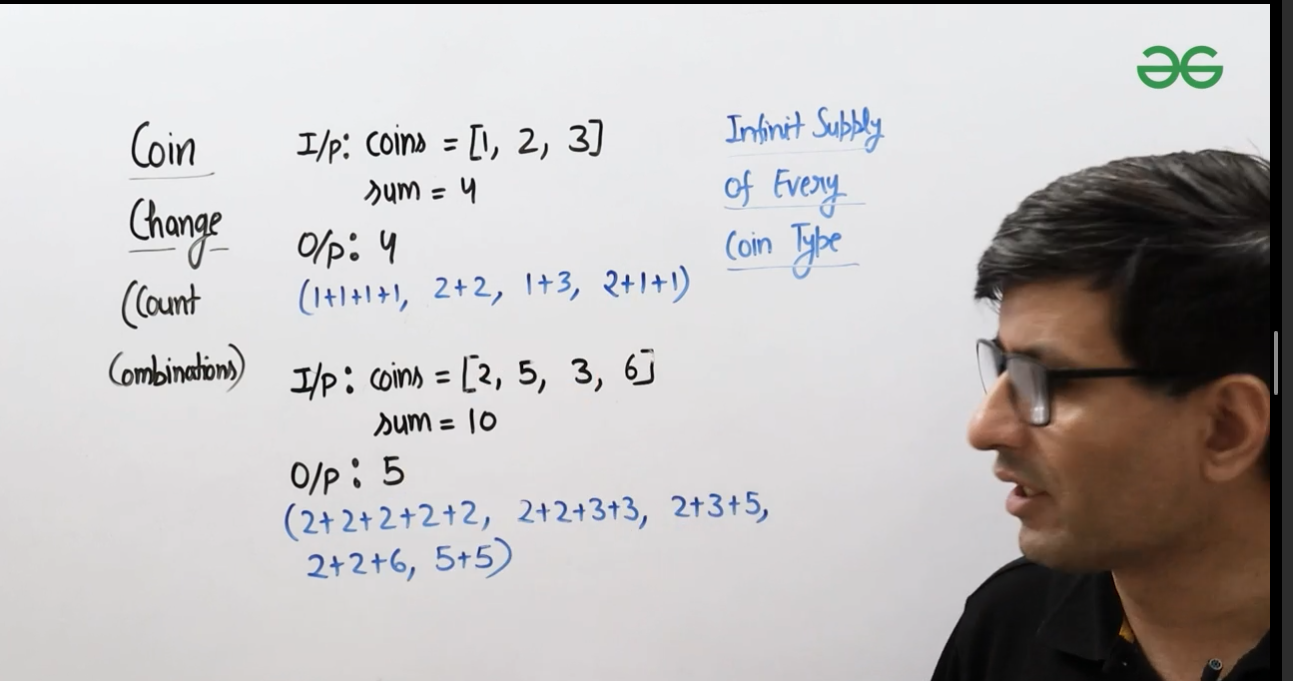 Coin
Change
(Count
Combinations)
I/p: coins = [1, 2, 3]
sum = 4
O/p: 4
(1+1+1+1, 2+2, 1+3, 2+1+1)
I/p: coins = [2, 5, 3, 6]
sum = 10
O/p: 5
(2+2+2+2+2, 2+2+3+3, 2+3+5,
2+2+6, 5+5)
Infinit Supply
of Every
Coin Type